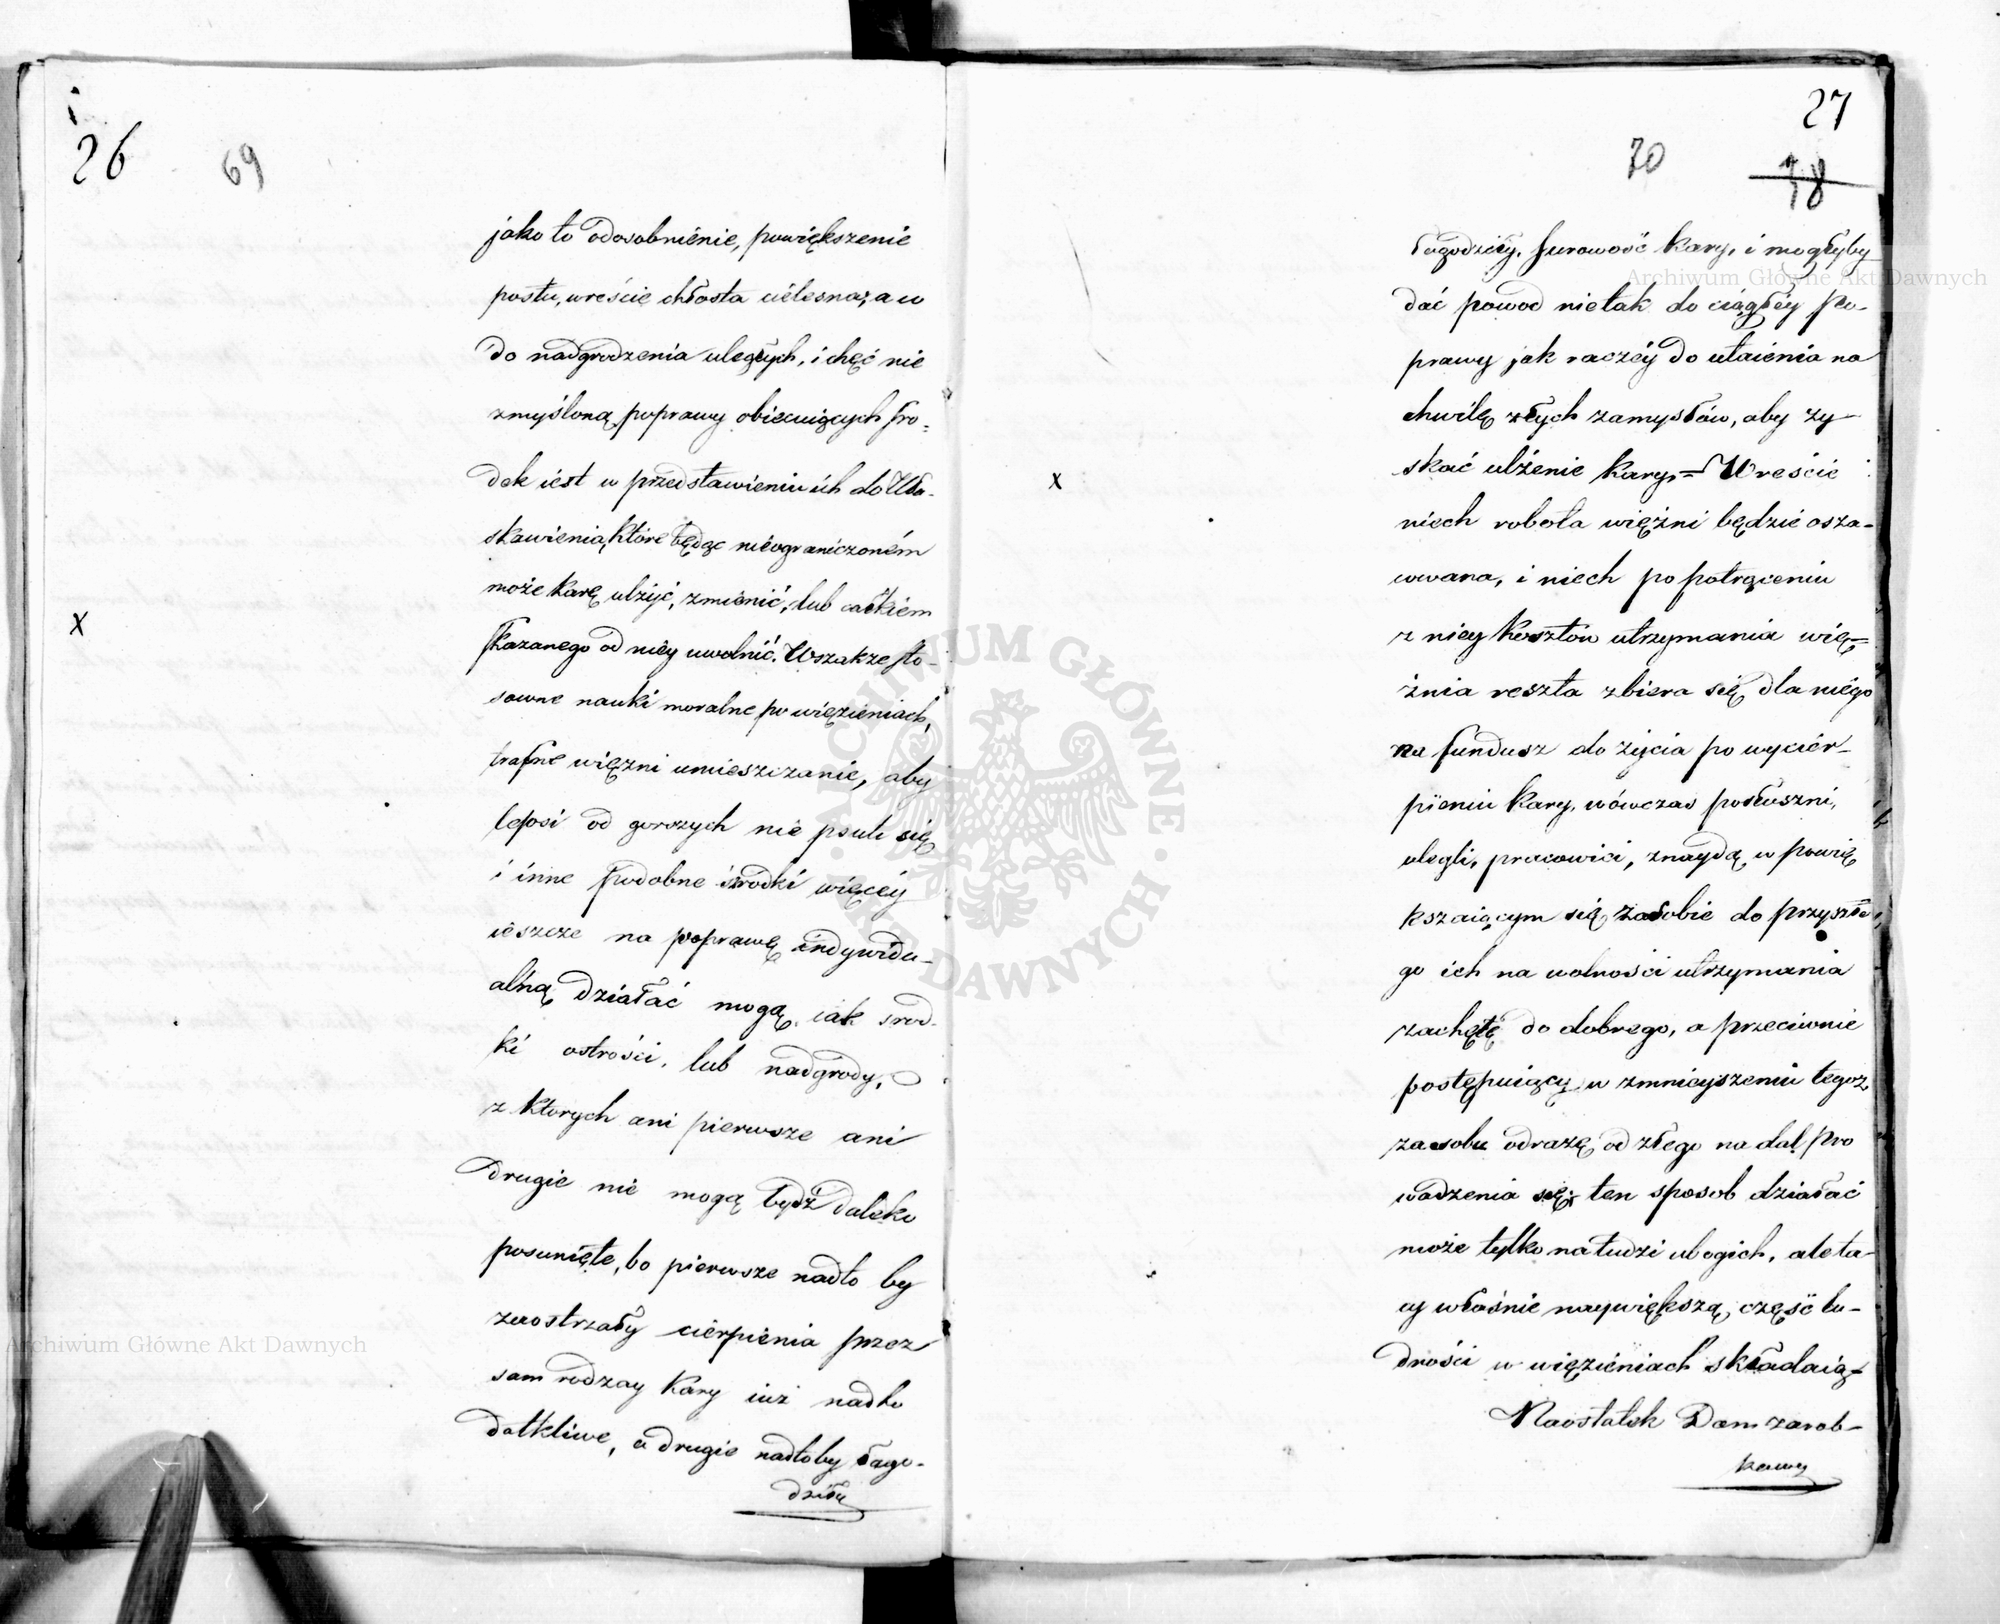 26
69
jako to odosobnienie, powiększenie
postu, wreście chłosta cielesna; a w
do nadgrodzenia uległych, i chęć nie
zmyśloną poprawy obiecuiących śro=
dek iest w przedstawieniu ich do Uła-
skawienia, które będąc nieograniczoném
może karę ulżyć, zmienić, lub całkiem
skazanego od niéy uwolnić. Wszakże sto-
sowne nauki moralne po więzieniach,
trafne więźni umieszczanie, aby
lepsi od gorszych nie psuli się
i inne podobne środki więcéy
ieszcze na poprawę indywidu-
alną działać mogą iak środ-
ki ostrości, lub nadgrody,
z ktorych ani pierwsze ani
drugie nie mogą bydź daleko
posunięte, bo pierwsze nadto by
zaostrzały cierpienia przez
sam rodzay kary iuż nadto
dotkliwe, a drugie nadtoby łago-
dziły
x
27
70
78
łagodziły surowość kary, i mogłyby
dać powod nietak do ciągłéy po-
prawy jak raczéy do utaienia na
chwilę złych zamysłów, aby zy-
skać ulżenie kary.= Wreście
niech robota więźni będzie osza-
wana, i niech po potrąceniu
z niey kosztów utrzymania wię=
źnia reszta zbiera się dla niego
na fundusz do życia po wycier-
pieniu kary, wówczas posłuszni,
ulegli, pracowici, znaydą w powię
kszaiącym się zasobie do przyszłe
go ich na wolności utrzymania
zachętę do dobrego, a przeciwnie
postępuiący w zmnieyszeniu tegoż
zasobu odrazę od złego na dal pro
wadzenia się; ten sposob działać
może tylko na ludzi ubogich, ale ta-
cy właśnie naywiększą część lu-
dności w więzieniach składaią-
Naostatek Dom zarob-
kowy
x
ARCHIWUM GŁÓWNE AKT DAWNYCH
Archiwum Główne Akt Dawnych
Archiwum Główne Akt Dawnych